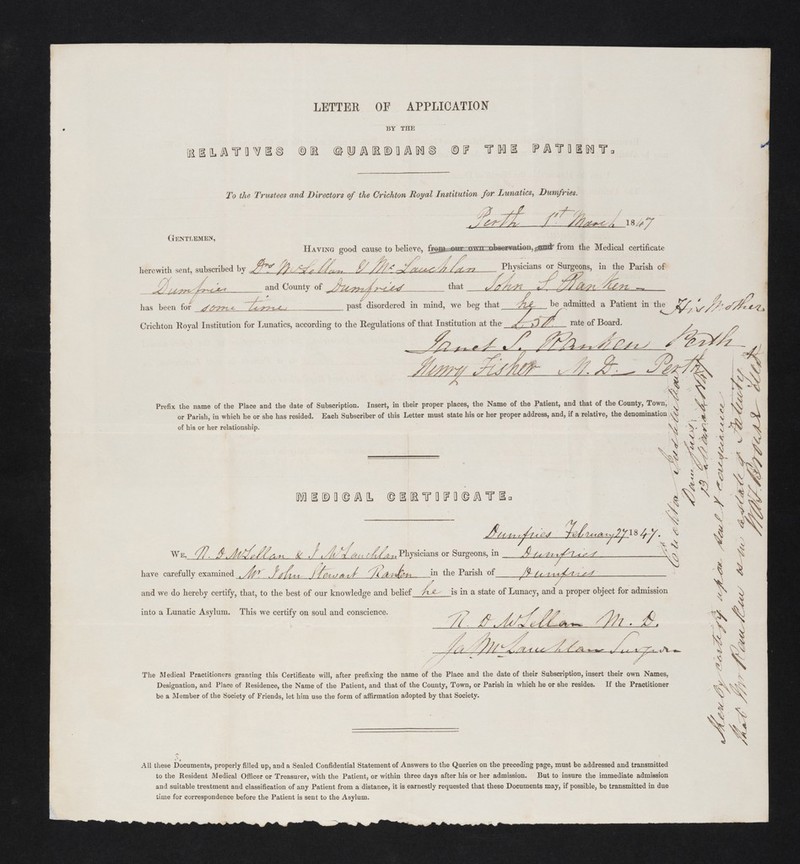 LETTER OF APPLICATION
BY THE
RELATIVES OR GUARDIANS OF THE PATIENT.
To the Trustees and Directors of the Crichton Royal Institution for Lunatics, Dumfries.
Perth 1st March 1847
GENTLEMEN,
HAVING good cause to believe, from our own observation, and from the Medical certificate
herewith sent, subscribed by Drs McLellan & McLauchlan Physicians or Surgeons, in the Parish of
Dumfries and County of Dumfries that John S. Ranken
has been for some time past disordered in mind, we beg that he be admitted a Patient in the
Crichton Royal Institution for Lunatics, according to the Regulations of that Institution at the £50 rate of Board.
His Mother
Janet S. Ranken Perth
Henry Fisher M.D. Perth
Prefix the name of the Place and the date of Subscription. Insert, in their proper places, the Name of the Patient, and that of the County, Town,
or Parish, in which he or she has resided. Each Subscriber of this Letter must state his or her proper address, and, if a relative, the denomination
of his or her relationship.
MEDICAL CERTIFICATE.
Dumfries February 27 1847.
WE, R. D. McLellan & J. McLauchlan Physicians or Surgeons, in Dumfries
have carefully examined Mr John Stewart Ranken in the Parish of Dumfries
and we do hereby certify, that, to the best of our knowledge and belief he is in a state of Lunacy, and a proper object for admission
into a Lunatic Asylum. This we certify on soul and conscience.
R. D. McLellan M.D.
Ja McLauchlan Surgeon
The Medical Practitioners granting this Certificate will, after prefixing the name of the Place and the date of their Subscription, insert their own Names,
Designation, and Place of Residence, the Name of the Patient, and that of the County, Town, or Parish in which he or she resides. If the Practitioner
be a Member of the Society of Friends, let him use the form of affirmation adopted by that Society.
All these Documents, properly filled up, and a Sealed Confidential Statement of Answers to the Queries on the preceding page, must be addressed and transmitted
to the Resident Medical Officer or Treasurer, with the Patient, or within three days after his or her admission. But to insure the immediate admission
and suitable treatment and classification of any Patient from a distance, it is earnestly requested that these Documents may, if possible, be transmitted in due
time for correspondence before the Patient is sent to the Asylum.
Crichton Institution
Dumfries
12 March 1847
I hereby certify upon soul & conscience
that Mr Ranken is in a state of Fatuity